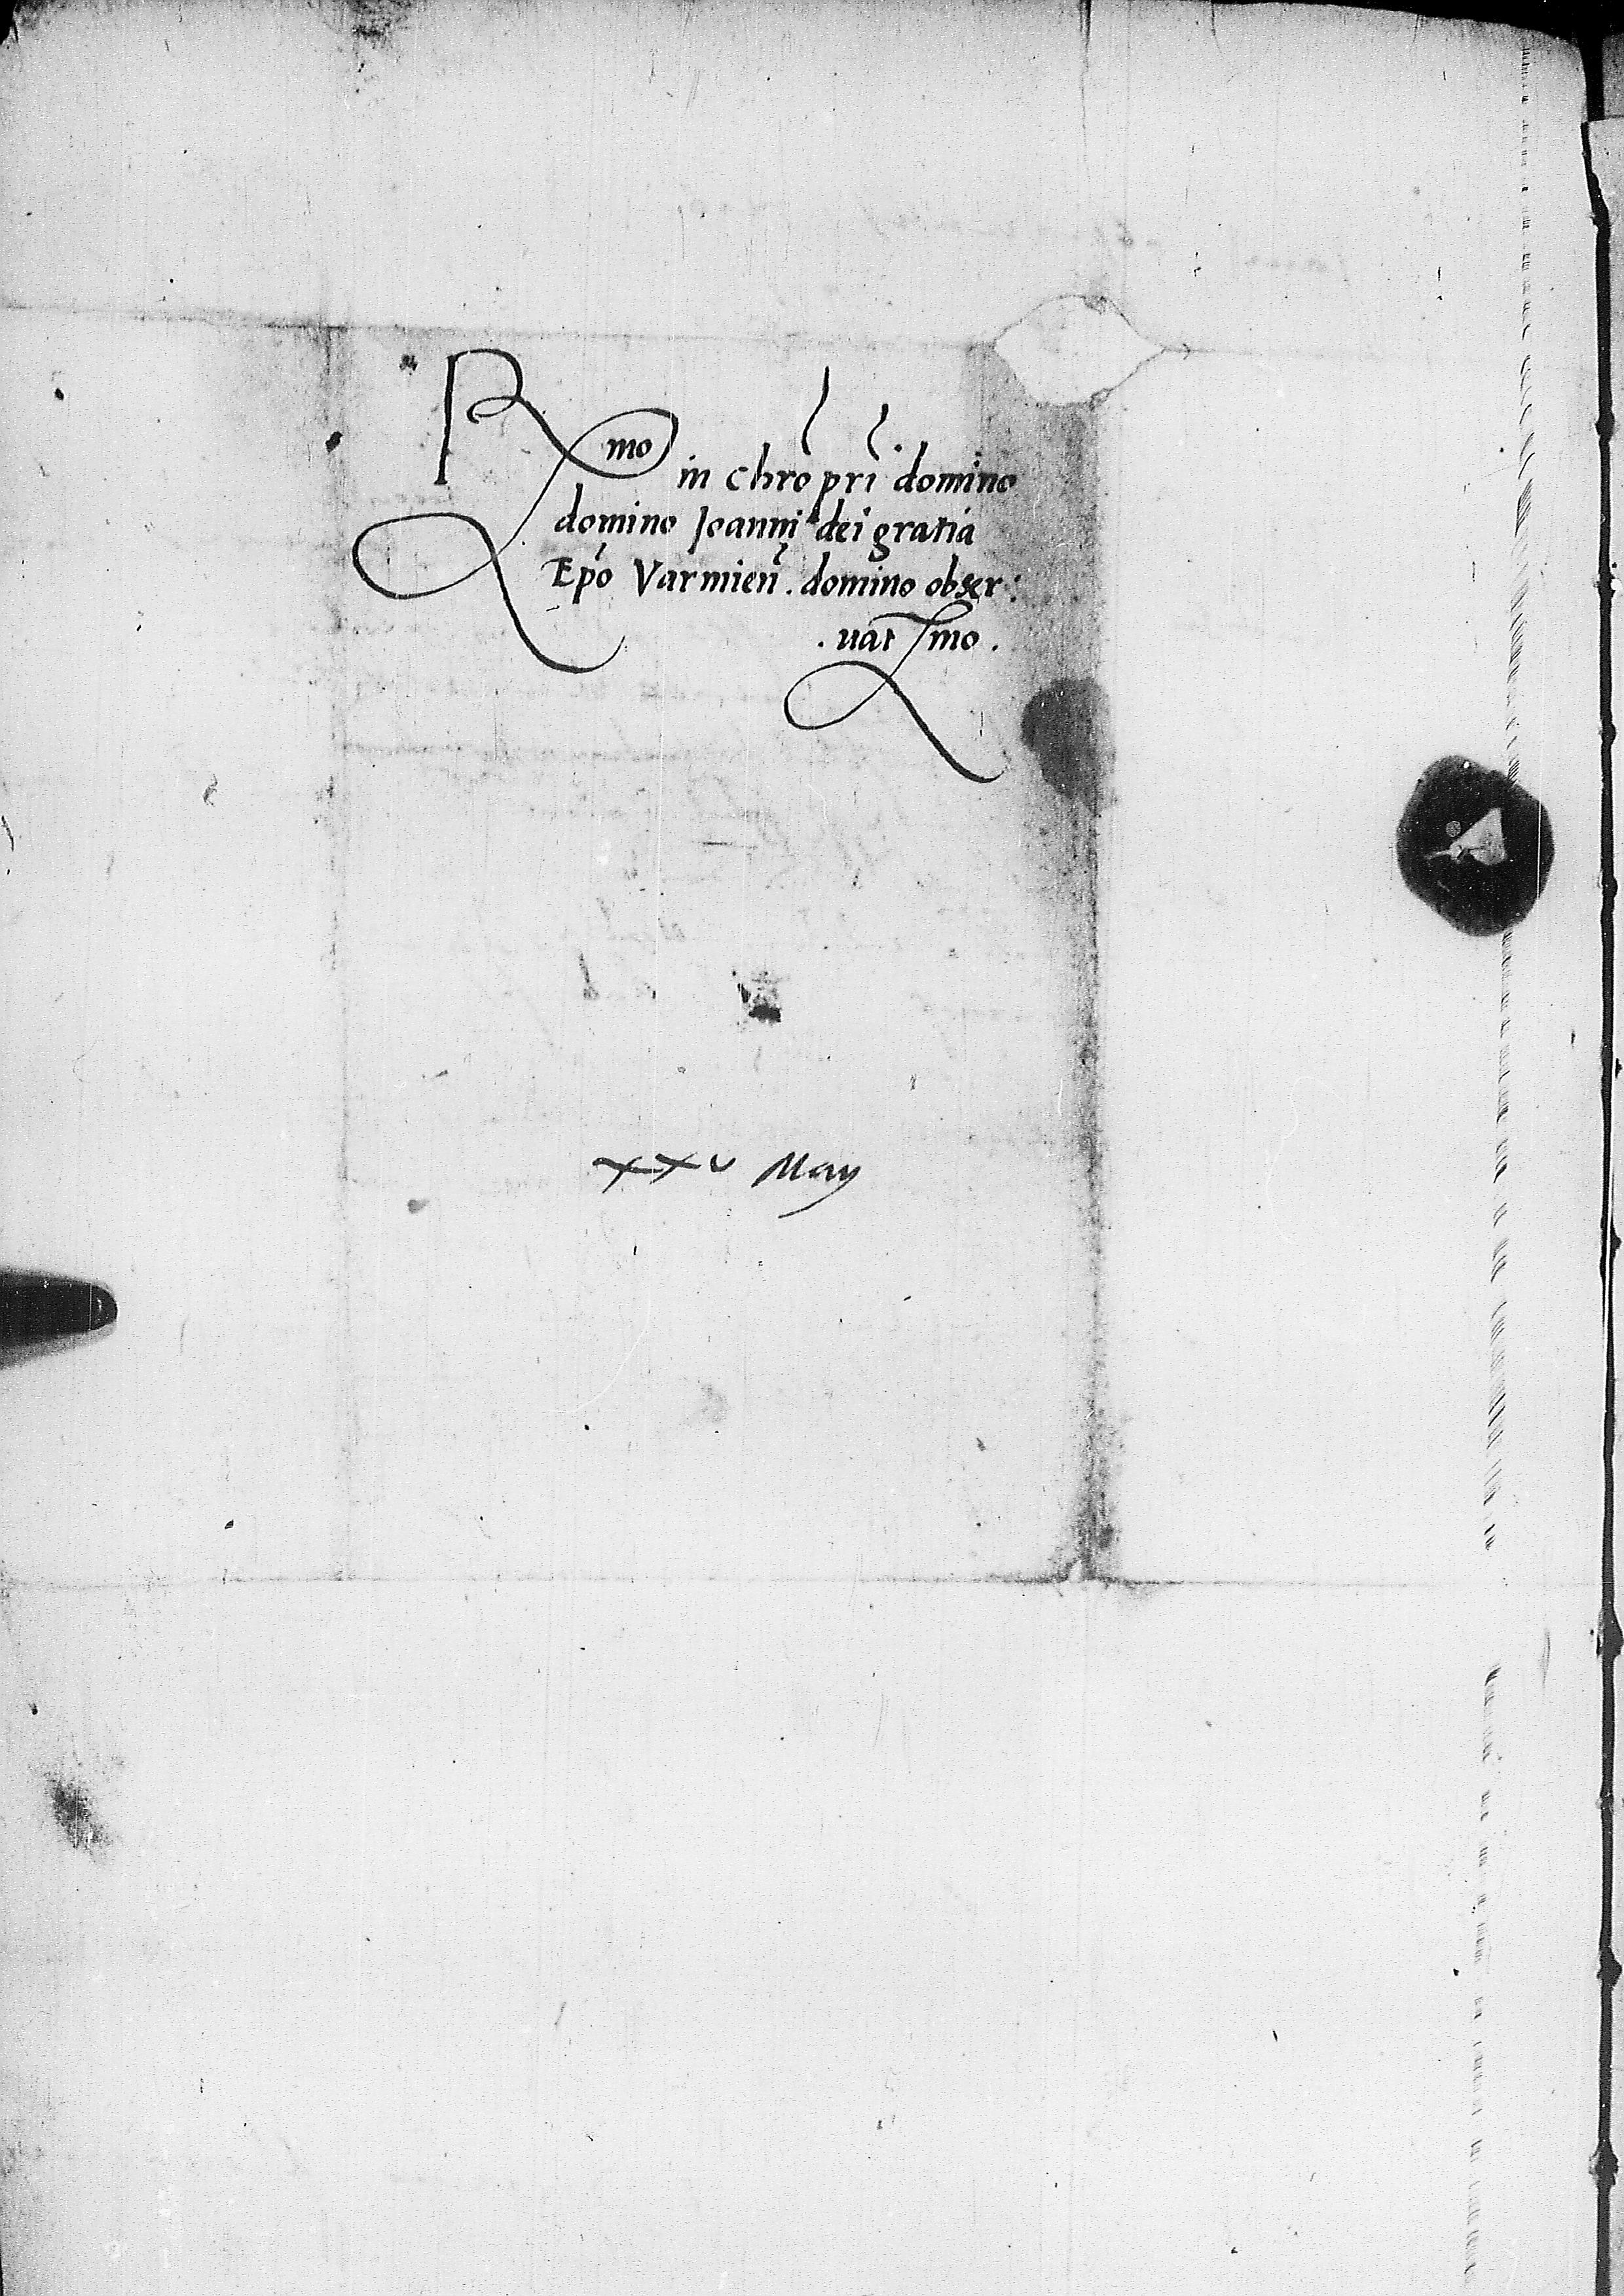 Rmo in chro pri domino
domino Joanni dei gratia
Epo Varmien̄. domino obser:
.uat mo.
xxv May